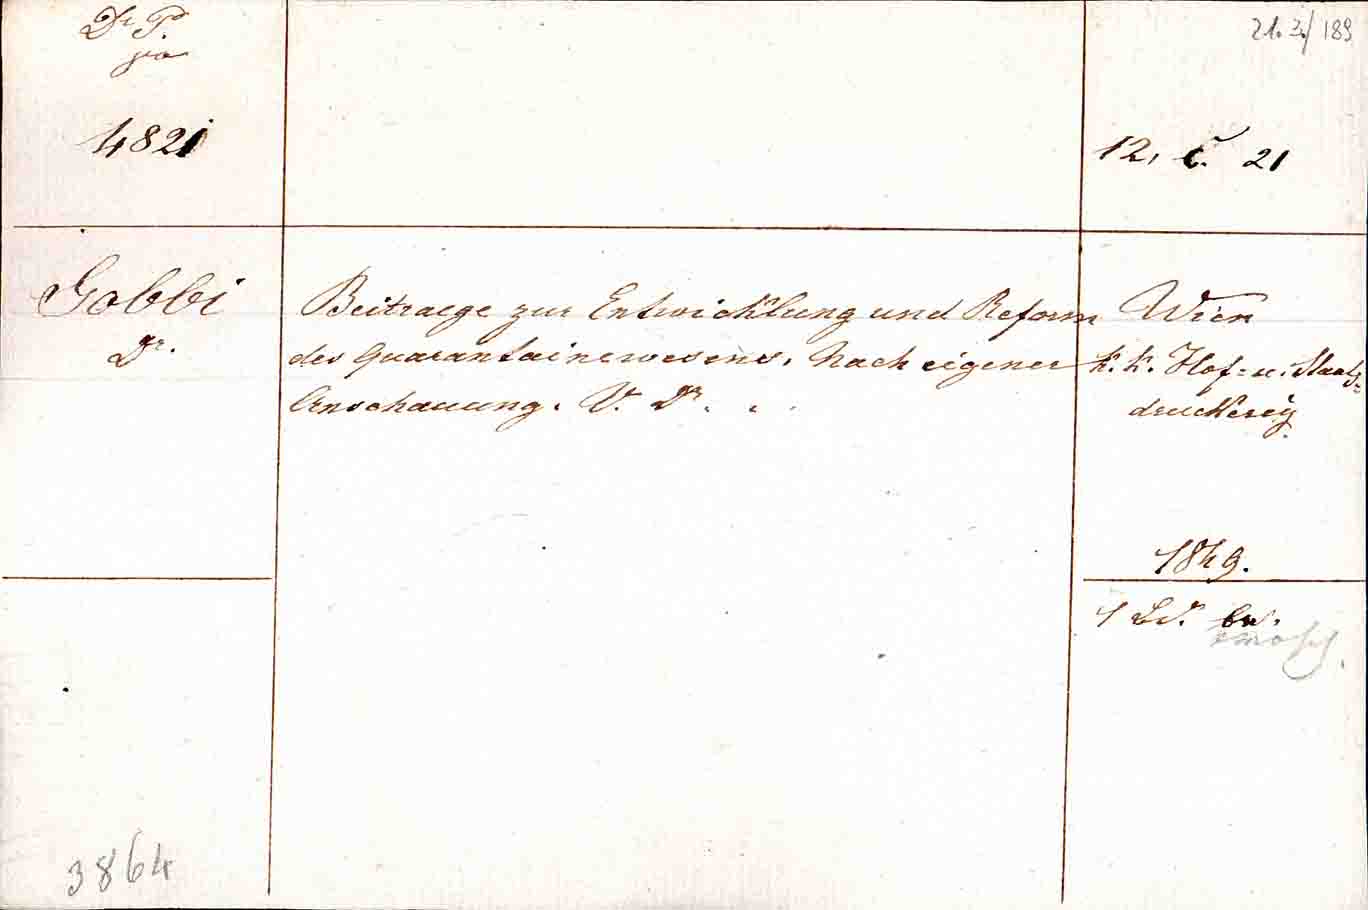 Dr P.
21. 3./189
4821
12. C. 21
Gobbi
Dr.
Beitraege zur Entwicklung und Reform
des Quarantainewesens. Nach eigener
Anschauung. V. Dr. . .
Wien
k. k. Hof- u. Staats-
druckerey.
1849.
1 Bd. br.
3864